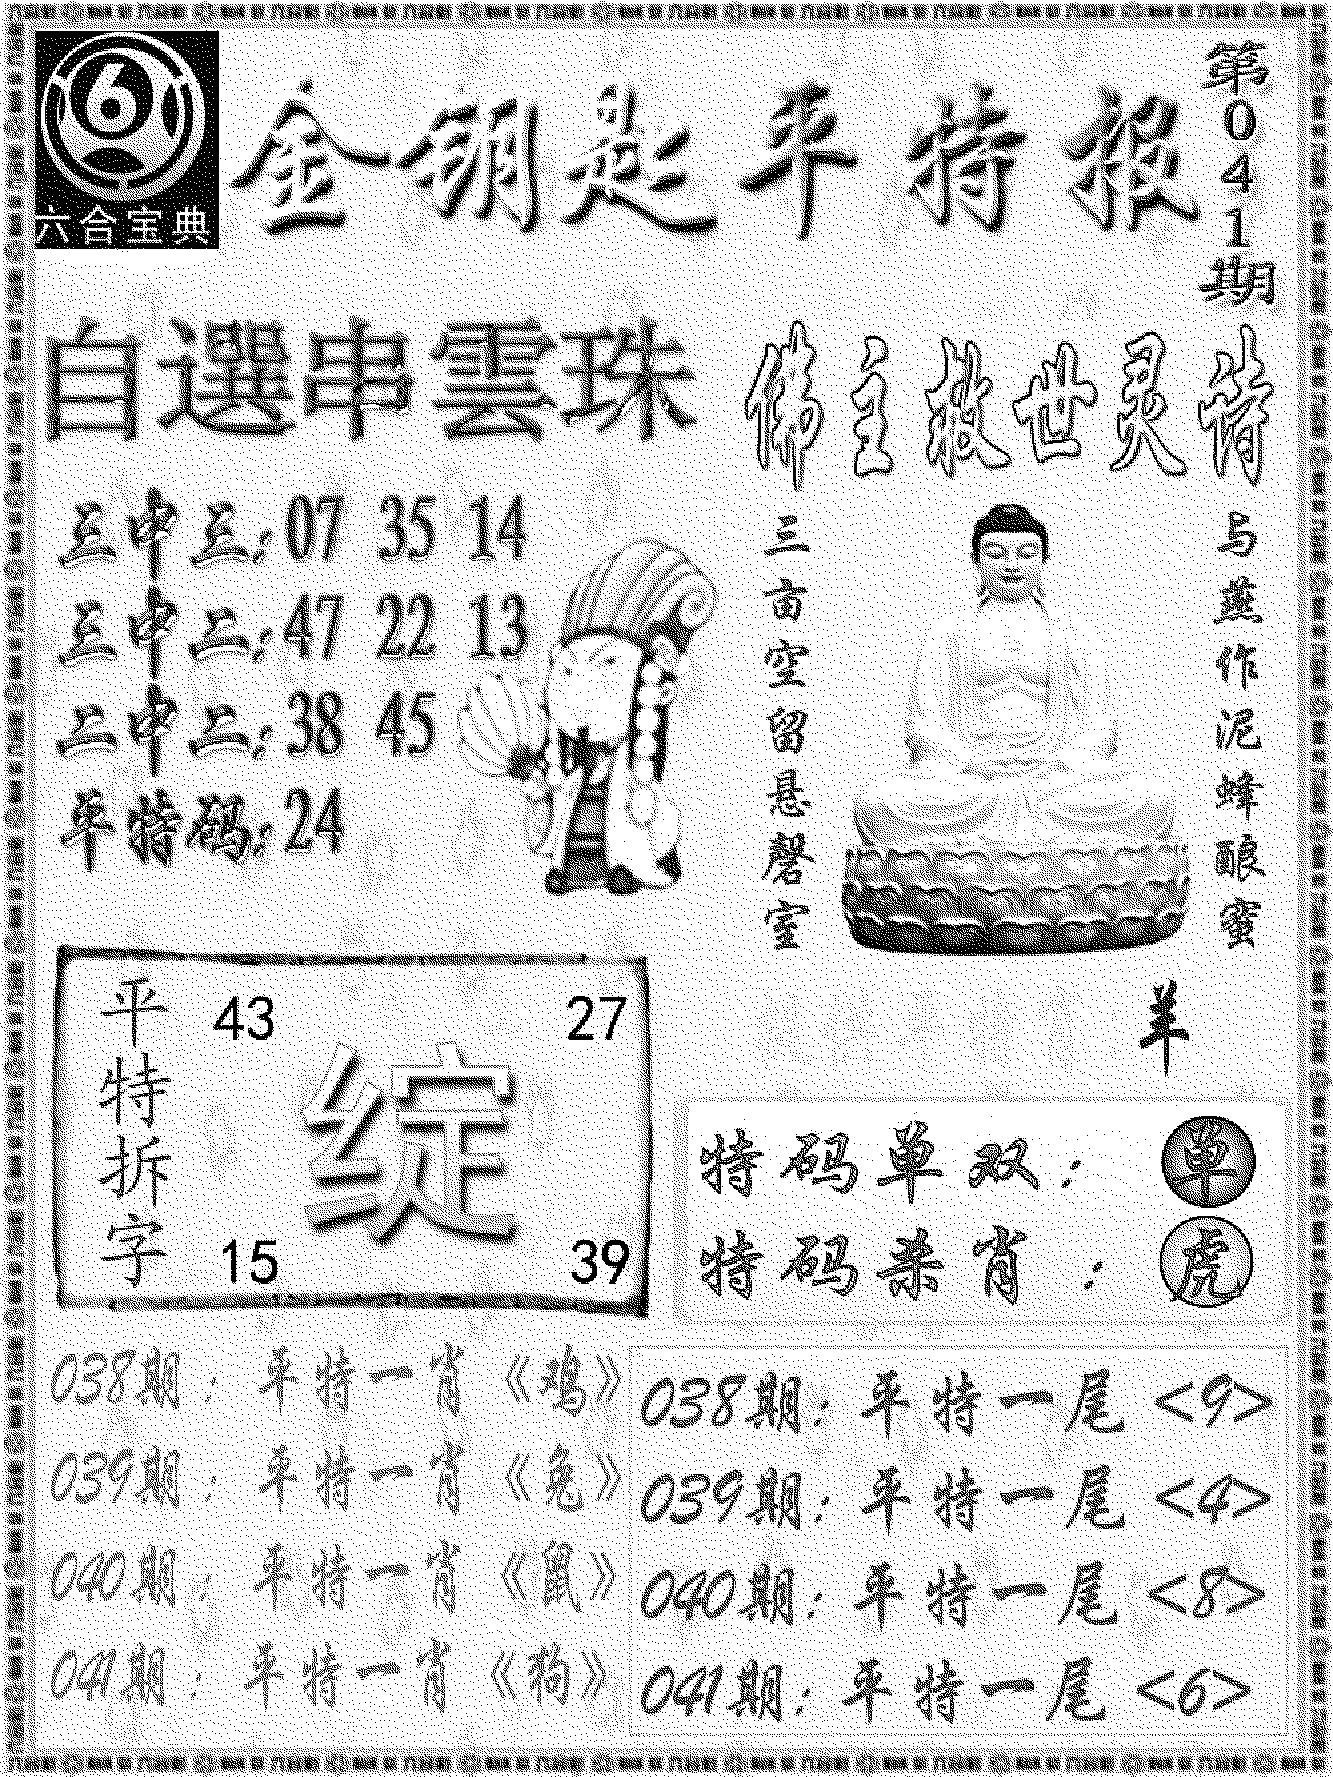 六合宝典
金钥匙平特报
第041期
自選串雲珠
三中三:07 35 14
三中二:47 22 13
二中二:38 45
平特码:24
佛主救世灵诗
与燕作泥蜂酿蜜
三亩空留悬磬室
羊
平特拆字
43 27
绽
15 39
特码单双:单
特码杀肖:虎
038期:平特一肖《鸡》
039期:平特一肖《兔》
040期:平特一肖《鼠》
041期:平特一肖《狗》
038期:平特一尾<9>
039期:平特一尾<4>
040期:平特一尾<8>
041期:平特一尾<6>